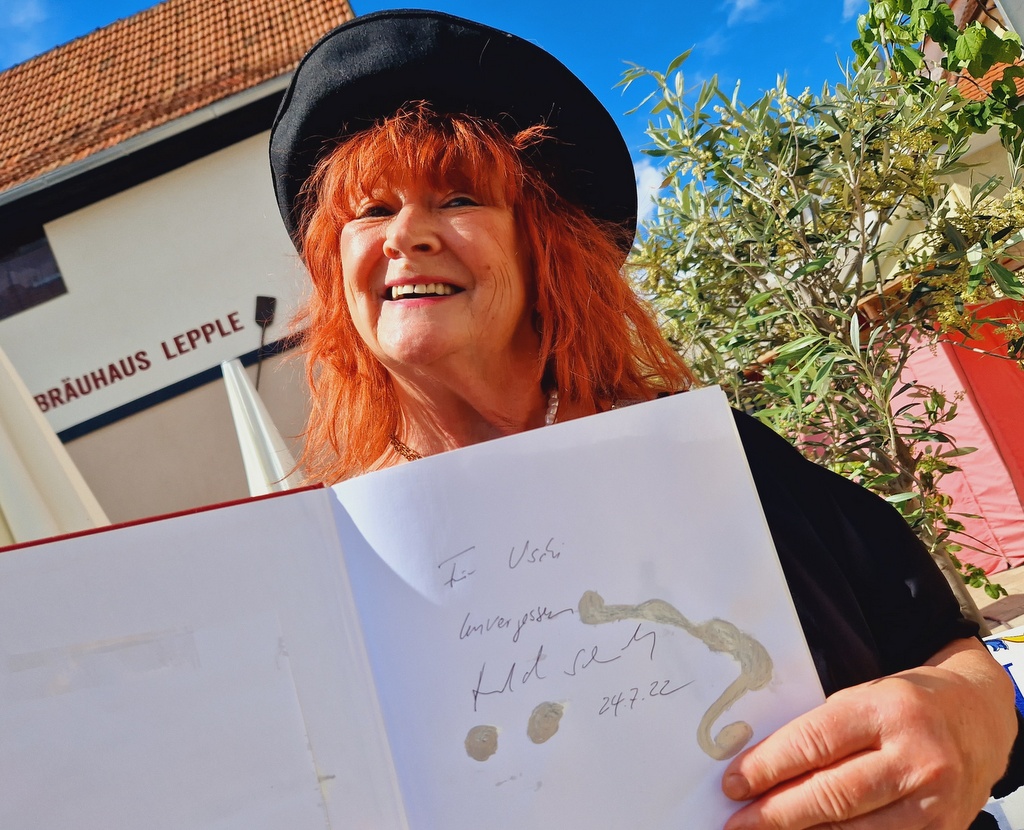 BRÄUHAUS LEPPLE
Für Uschi
unvergessen
24.7.22